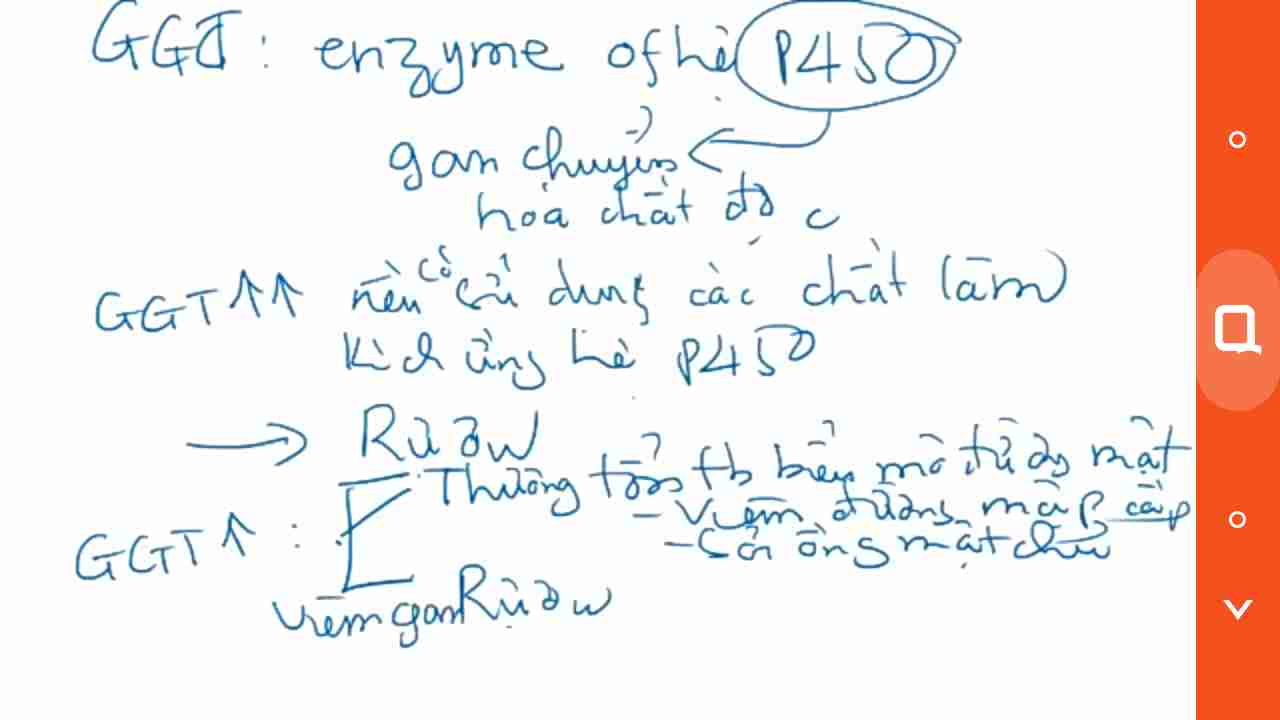 GGT: enzyme of hệ P450
gan chuyển
hóa chất độc
GGT↑↑ nếu có sử dụng các chất làm
kích ứng hệ P450
→ Rượu
Thương tổn tb biểu mô đường mật
- Viêm đường mật cấp
- Sỏi ống mật chủ
GGT↑:
Viêm gan Rượu